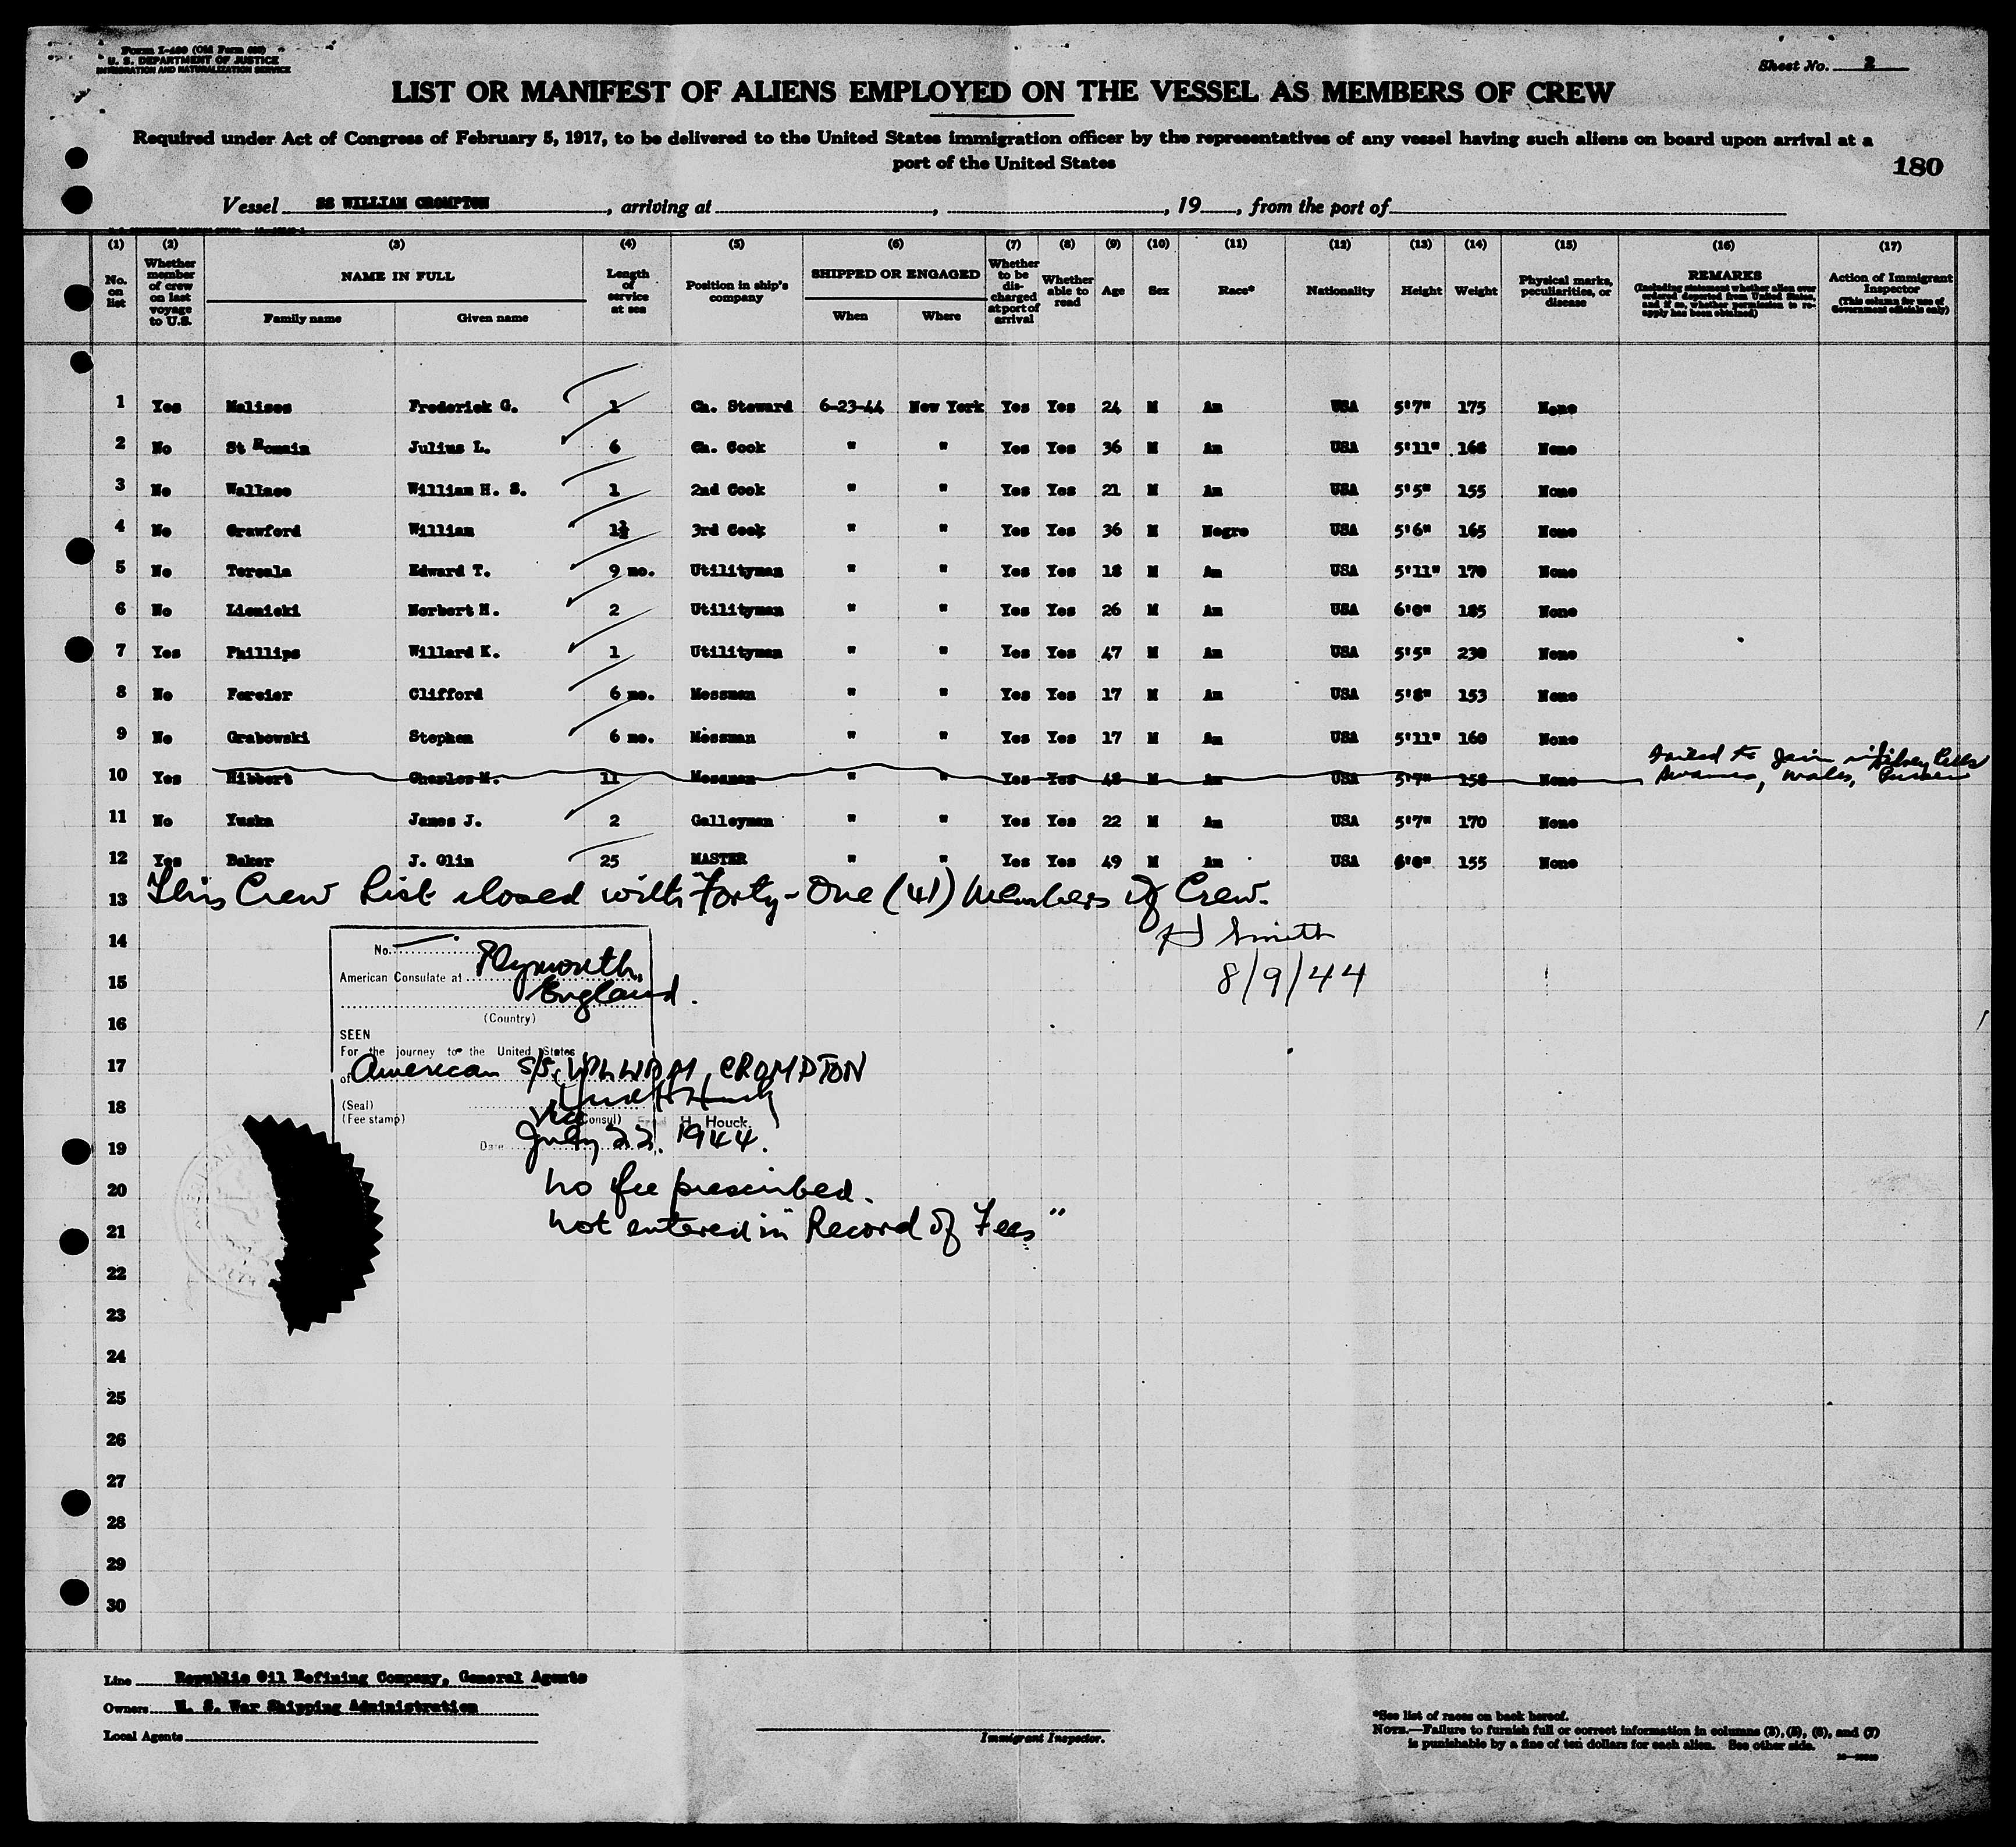 Form I-480 (Old Form 680)
U. S. DEPARTMENT OF JUSTICE
IMMIGRATION AND NATURALIZATION SERVICE
Sheet No. 2
LIST OR MANIFEST OF ALIENS EMPLOYED ON THE VESSEL AS MEMBERS OF CREW
Required under Act of Congress of February 5, 1917, to be delivered to the United States immigration officer by the representatives of any vessel having such aliens on board upon arrival at a
port of the United States
180
Vessel SS WILLIAM CROMPTON, arriving at , , 19 , from the port of
(1) (2) (3) (4) (5) (6) (7) (8) (9) (10) (11) (12) (13) (14) (15) (16) (17)
No. on list
Whether member of crew on last voyage to U.S.
NAME IN FULL
Family name Given name
Length of service at sea
Position in ship's company
SHIPPED OR ENGAGED
When Where
Whether to be discharged at port of arrival
Whether able to read
Age
Sex
Race*
Nationality
Height
Weight
Physical marks, peculiarities, or disease
REMARKS
(Including statement whether alien ever ordered deported from United States, and if so, whether permission to reapply has been obtained)
Action of Immigrant Inspector
(This column for use of Government officials only)
1 Yes Frederick G. 1 Ch. Steward 6-23-44 New York Yes Yes 24 M Am USA 5'7" 175 None
2 No St Romain Julius L. 6 Ch. Cook " " Yes Yes 36 M Am USA 5'11" 168 None
3 No Wallace William H. S. 1 2nd Cook " " Yes Yes 21 M Am USA 5'5" 155 None
4 No Crawford William 1½ 3rd Cook " " Yes Yes 36 M Negro USA 5'6" 165 None
5 No Edward T. 9 mo. Utilityman " " Yes Yes 18 M Am USA 5'11" 170 None
6 No Norbert H. 2 Utilityman " " Yes Yes 26 M Am USA 6'0" 185 None
7 Yes Phillips Willard K. 1 Utilityman " " Yes Yes 47 M Am USA 5'5" 230 None
8 No Forcier Clifford 6 mo. Messman " " Yes Yes 17 M Am USA 5'8" 153 None
9 No Grabowski Stephen 6 mo. Messman " " Yes Yes 17 M Am USA 5'11" 160 None
10 Yes Hibbert Charles M. 11 Messman " " Yes Yes 48 M Am USA 5'7" 158 None Failed to Join
Swansea, Wales,
11 No Yuska James J. 2 Galleyman " " Yes Yes 22 M Am USA 5'7" 170 None
12 Yes Baker J. Olin 25 MASTER " " Yes Yes 49 M Am USA 6'0" 155 None
13 This Crew List closed with Forty-One (41) Members of Crew.
14 H Smith
15 8/9/44
No.
American Consulate at Plymouth,
England.
(Country)
16
SEEN
For the journey to the United States
17 of American S/S. WILLIAM CROMPTON
18
(Seal)
(Fee stamp)
Vice Consul) H. Houck
19 Date July 22. 1944.
20 No fee prescribed.
21 Not entered in "Record of Fees"
22
23
24
25
26
27
28
29
30
Line Republic Oil Refining Company, General Agents
Owners U. S. War Shipping Administration
Local Agents
Immigrant Inspector.
*See list of races on back hereof.
NOTE.—Failure to furnish full or correct information in columns (3), (5), (6), and (7)
is punishable by a fine of ten dollars for each alien. See other side.